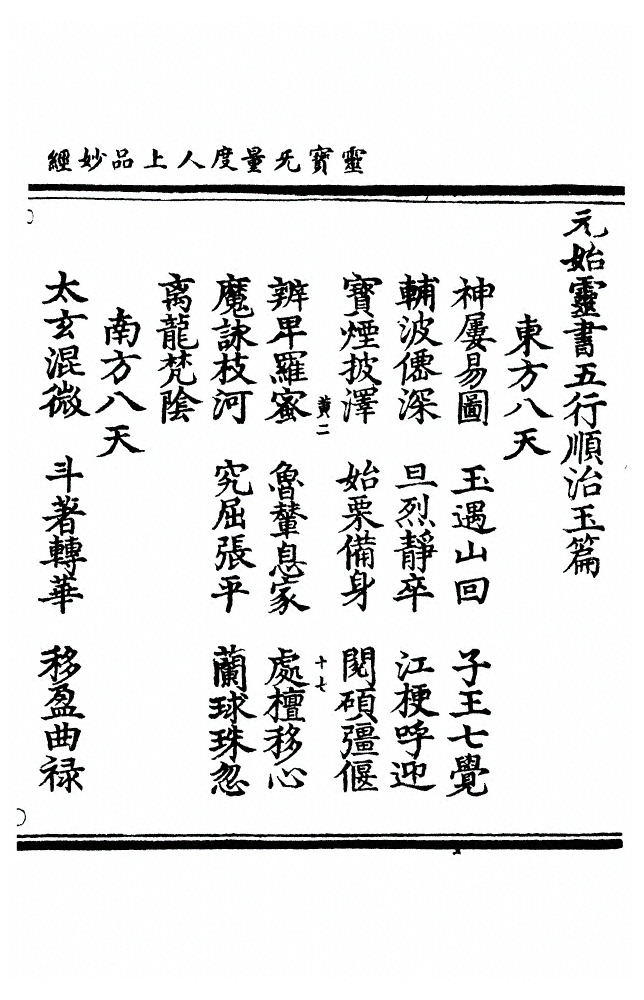 靈寶旡量度人上品妙經
元始靈書五行順治玉篇
東方八天
神屢易圖 玉遇山回 子王七覺
輔波僊深 旦烈靜卒 江梗呼迎
寶煙披澤 始栗備身 閱碩彊偃
黃二
十七
辨甲羅蜜 魯輦息家 處檀移心
魔詠枝河 究屈張平 蘭球珠忽
离龍梵陰
南方八天
太玄混微 斗著轉華 移盈曲祿